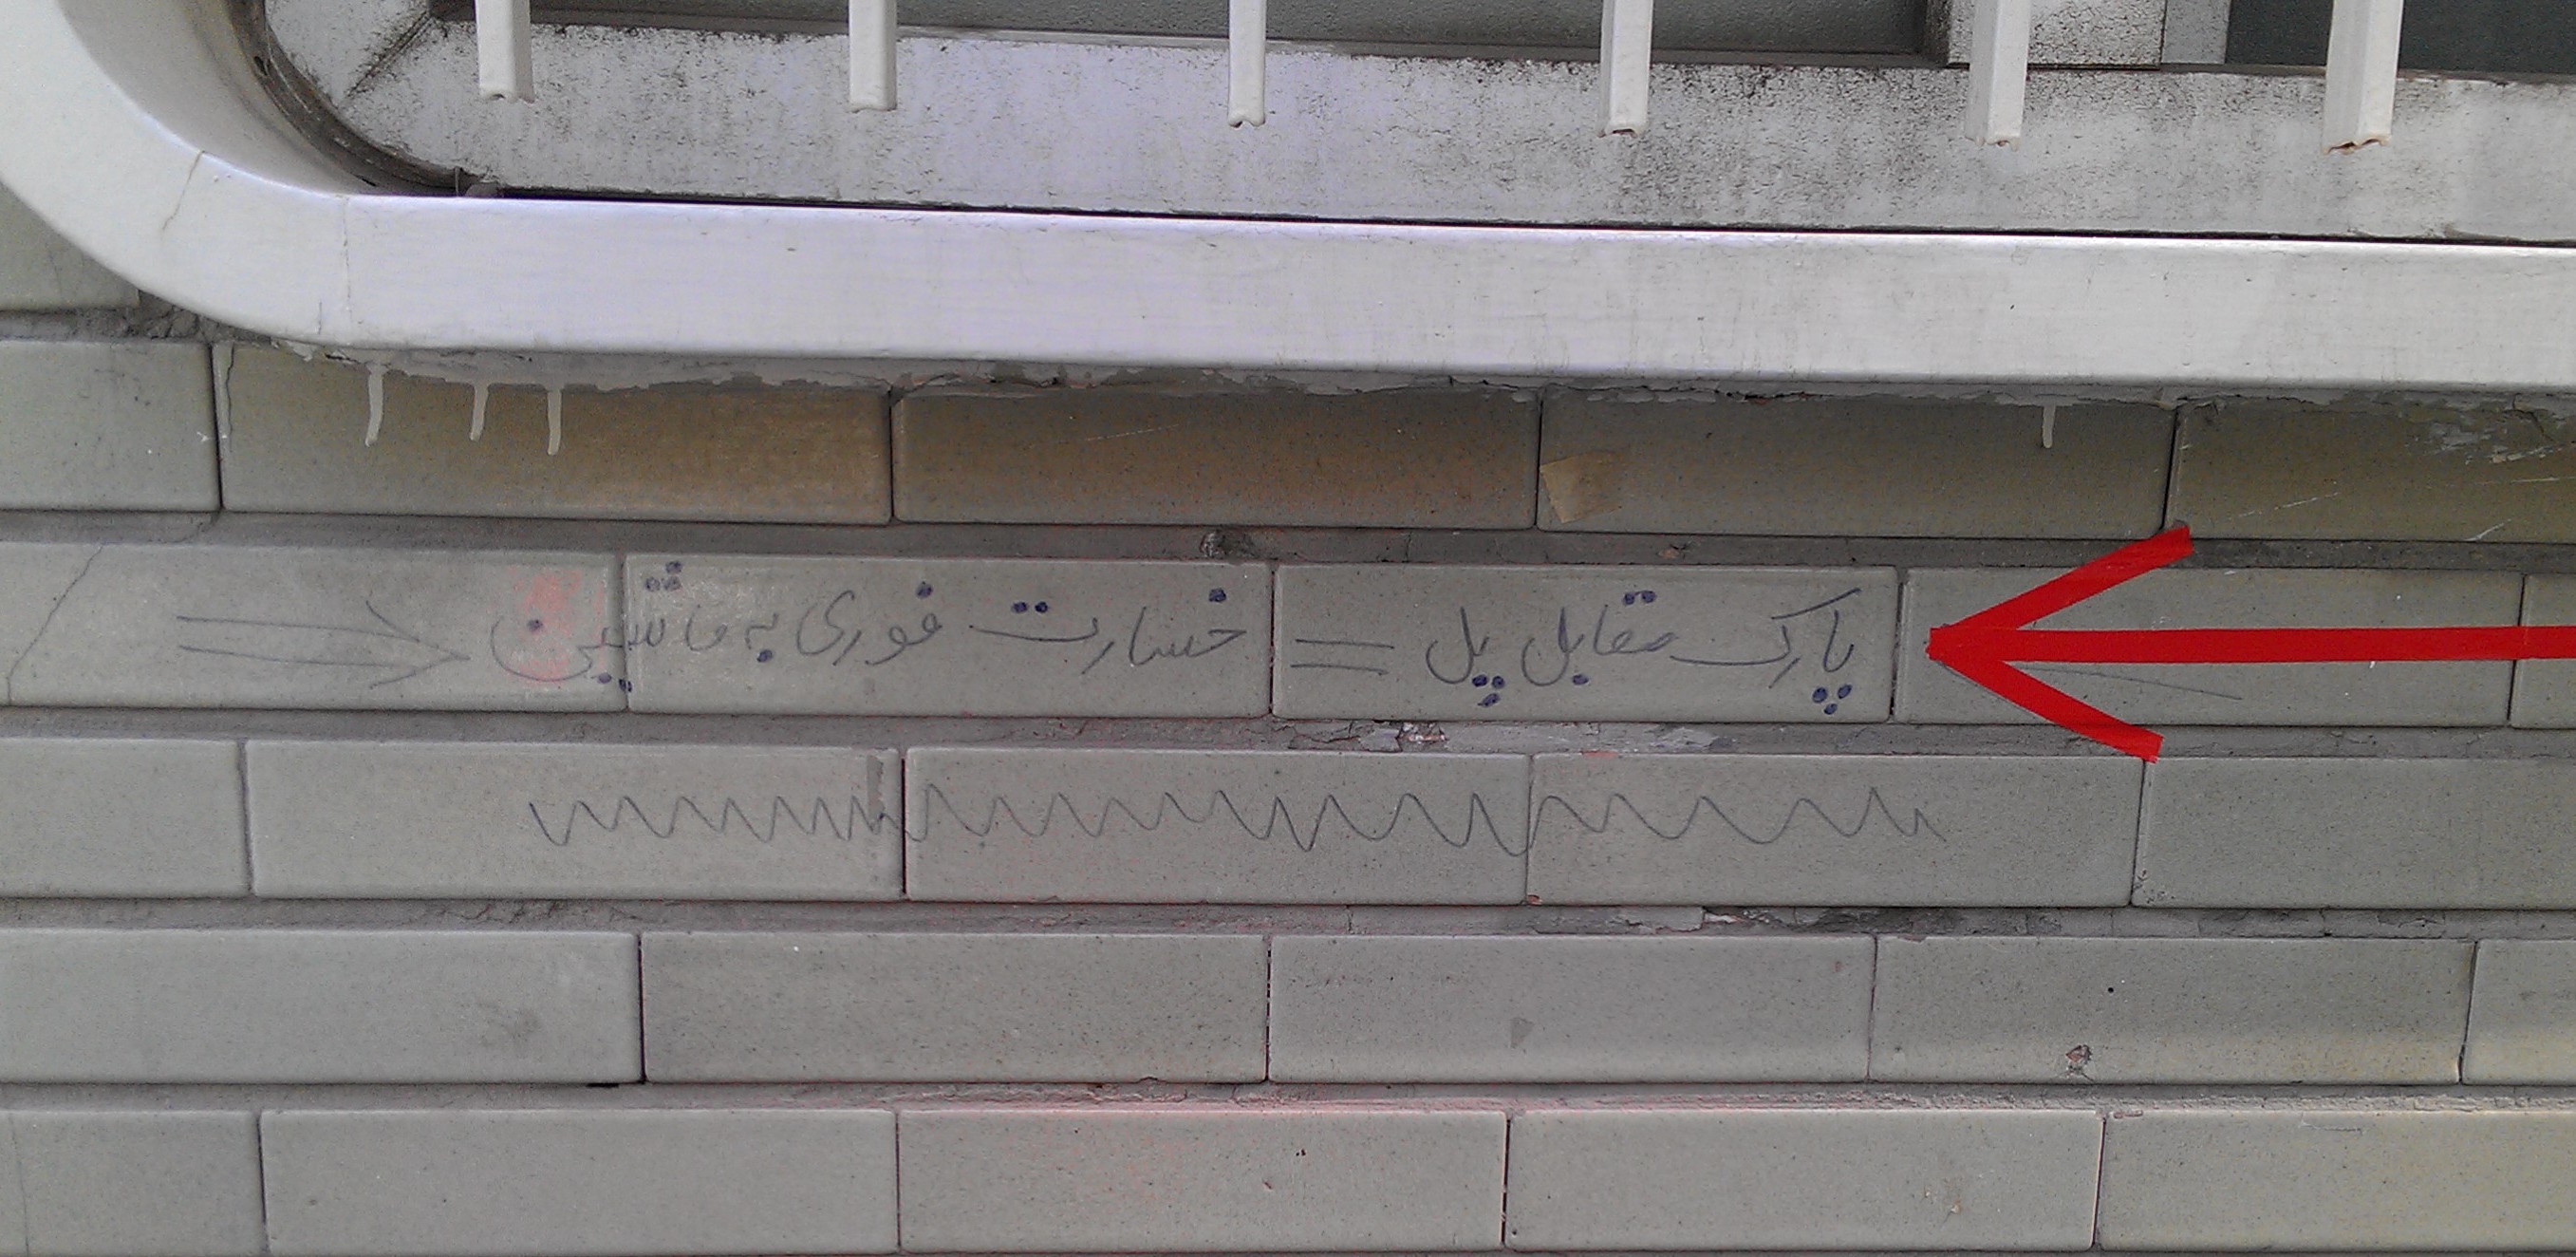 پارک مقابل پل = خسارت فوری به ماشین